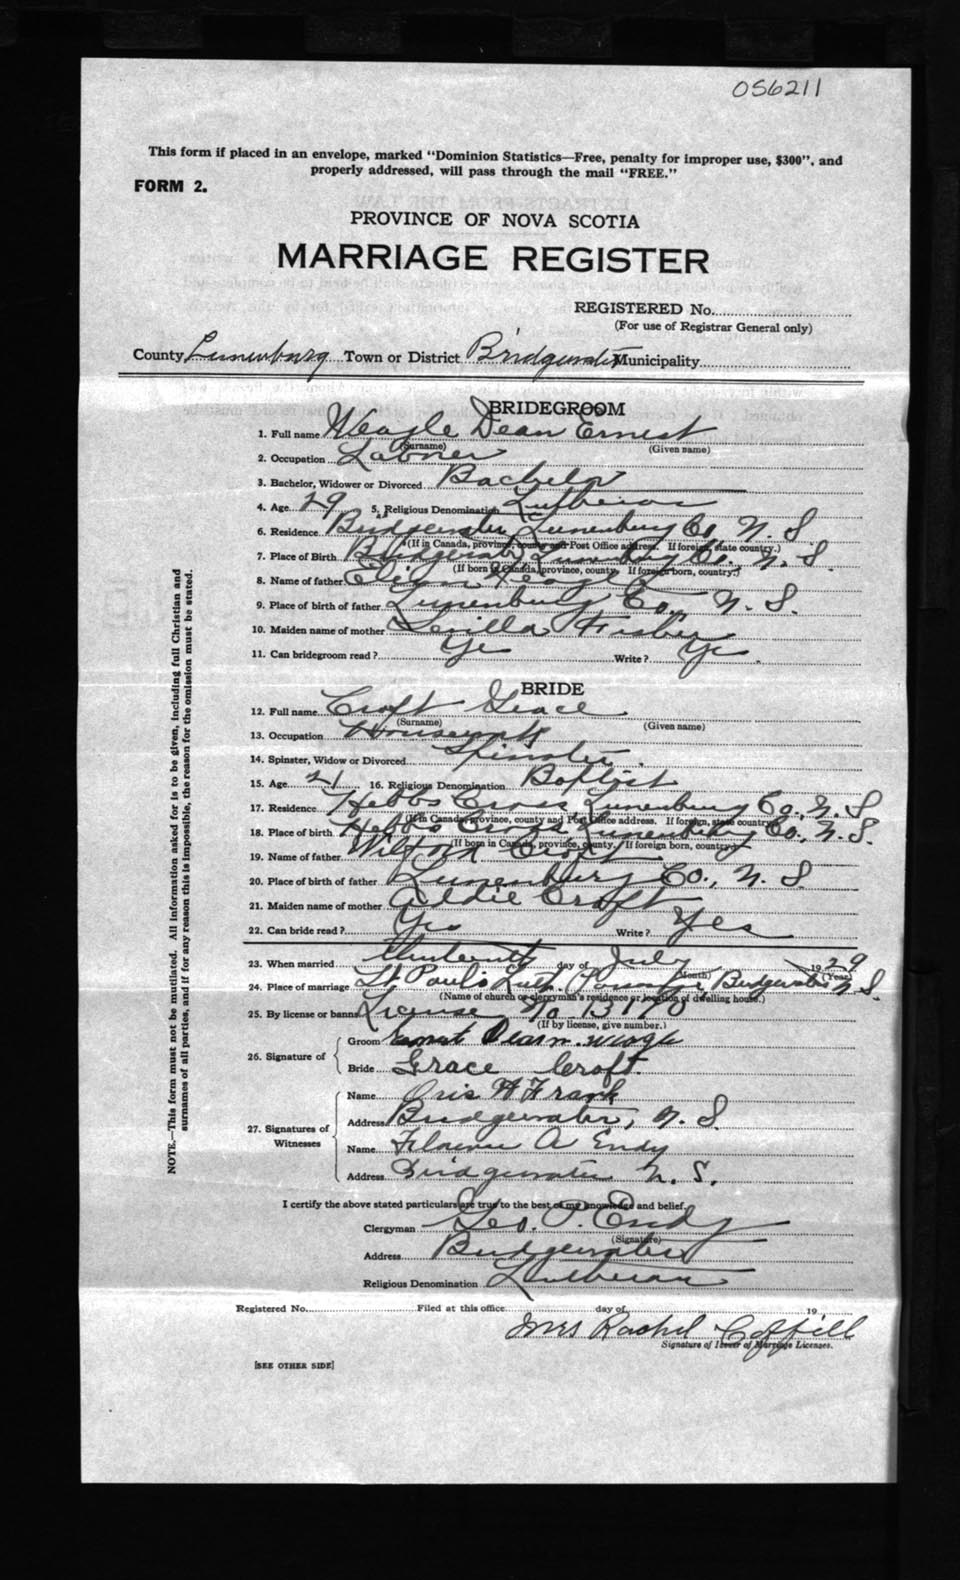 056211
This form if placed in an envelope, marked "Dominion Statistics—Free, penalty for improper use, $300", and
properly addressed, will pass through the mail "FREE."
FORM 2.
PROVINCE OF NOVA SCOTIA
MARRIAGE REGISTER
REGISTERED No.
(For use of Registrar General only)
County Lunenburg Town or District Bridgewater Municipality
BRIDEGROOM
1. Full name Veagle Dean Ernest
(Surname) (Given name)
2. Occupation Laborer
3. Bachelor, Widower or Divorced Bachelor
4. Age 29 5. Religious Denomination Lutheran
6. Residence Bridgewater, Lunenburg Co., N. S.
(If in Canada, province, county and Post Office address. If foreign, state country.)
7. Place of Birth Bridgewater, Lunenburg Co., N. S.
(If born in Canada, province, county. If foreign born, country.)
8. Name of father
9. Place of birth of father Lunenburg Co., N. S.
10. Maiden name of mother
11. Can bridegroom read? Yes Write? Yes
BRIDE
12. Full name Croft Grace
(Surname) (Given name)
13. Occupation Housework
14. Spinster, Widow or Divorced Spinster.
15. Age 21 16. Religious Denomination Baptist
17. Residence Hebbs Cross, Lunenburg Co., N. S.
(If in Canada, province, county and Post Office address. If foreign, state country.)
18. Place of birth Hebbs Cross, Lunenburg Co., N. S.
(If born in Canada, province, county. If foreign born, country.)
19. Name of father Wilford Croft
20. Place of birth of father Lunenburg Co., N. S.
21. Maiden name of mother Goldie Croft
22. Can bride read? Yes Write? Yes
23. When married day of July 1929
(Month) (Year)
24. Place of marriage St. Paul's Luth. Parsonage, Bridgewater N. S.
(Name of church or clergyman's residence or location of dwelling house.)
25. By license or banns License No. 13170
(If by license, give number.)
26. Signature of
Groom Ernest Dean
Bride Grace Croft.
27. Signatures of Witnesses
Name Oris Frank
Address Bridgewater, N. S.
Name A Endy
Address Bridgewater N. S.
I certify the above stated particulars are true to the best of my knowledge and belief.
Clergyman Geo. P. Endy
(Signature)
Address Bridgewater
Religious Denomination Lutheran
Registered No. Filed at this office day of 19
Mrs Rachel Coffill
Signature of Issuer of Marriage Licenses.
[SEE OTHER SIDE]
NOTE.—This form must not be mutilated. All information asked for is to be given, including full Christian and
surnames of all parties, and if for any reason this is impossible, the reason for the omission must be stated.